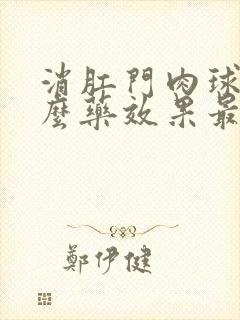 消肛門肉球
麼藥效果最
鄭伊健